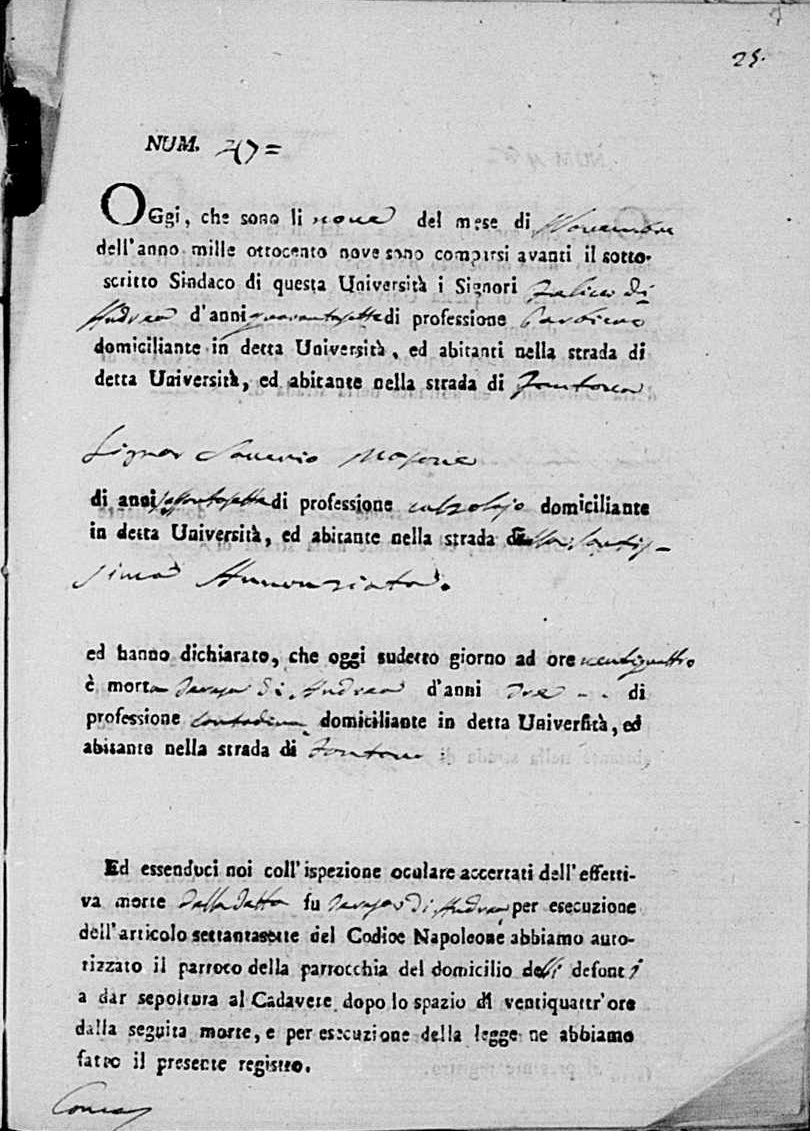 25.
NUM. 47=
OGgi, che sono li nove del mese di Novembre
dell'anno mille ottocento nove sono comparsi avanti il sotto-
scritto Sindaco di questa Università i Signori Felice di
Andrea d'anni quarantasette di professione
domiciliante in detta Università, ed abitanti nella strada di
detta Università, ed abitante nella strada di Fontana
Signor Saverio Majone
di anni di professione calzolajo domiciliante
in detta Università, ed abitante nella strada della Santis-
sima Annunziata.
ed hanno dichiarato, che oggi sudetto giorno ad ore ventiquattro
è morta Teresa di Andrea d'anni tre - - di
professione contadina domiciliante in detta Università, ed
abitante nella strada di Fontana
Ed essenduci noi coll'ispezione oculare accertati dell'effetti-
va morte della detta fu Teresa di Andrea per esecuzione
dell'articolo settantasette del Codice Napoleone abbiamo auto-
rizzato il parroco della parrocchia del domicilio delli defonti
a dar sepoltura al Cadavere dopo lo spazio di ventiquattr'ore
dalla seguita morte, e per esecuzione della legge ne abbiamo
fatto il presente registro.